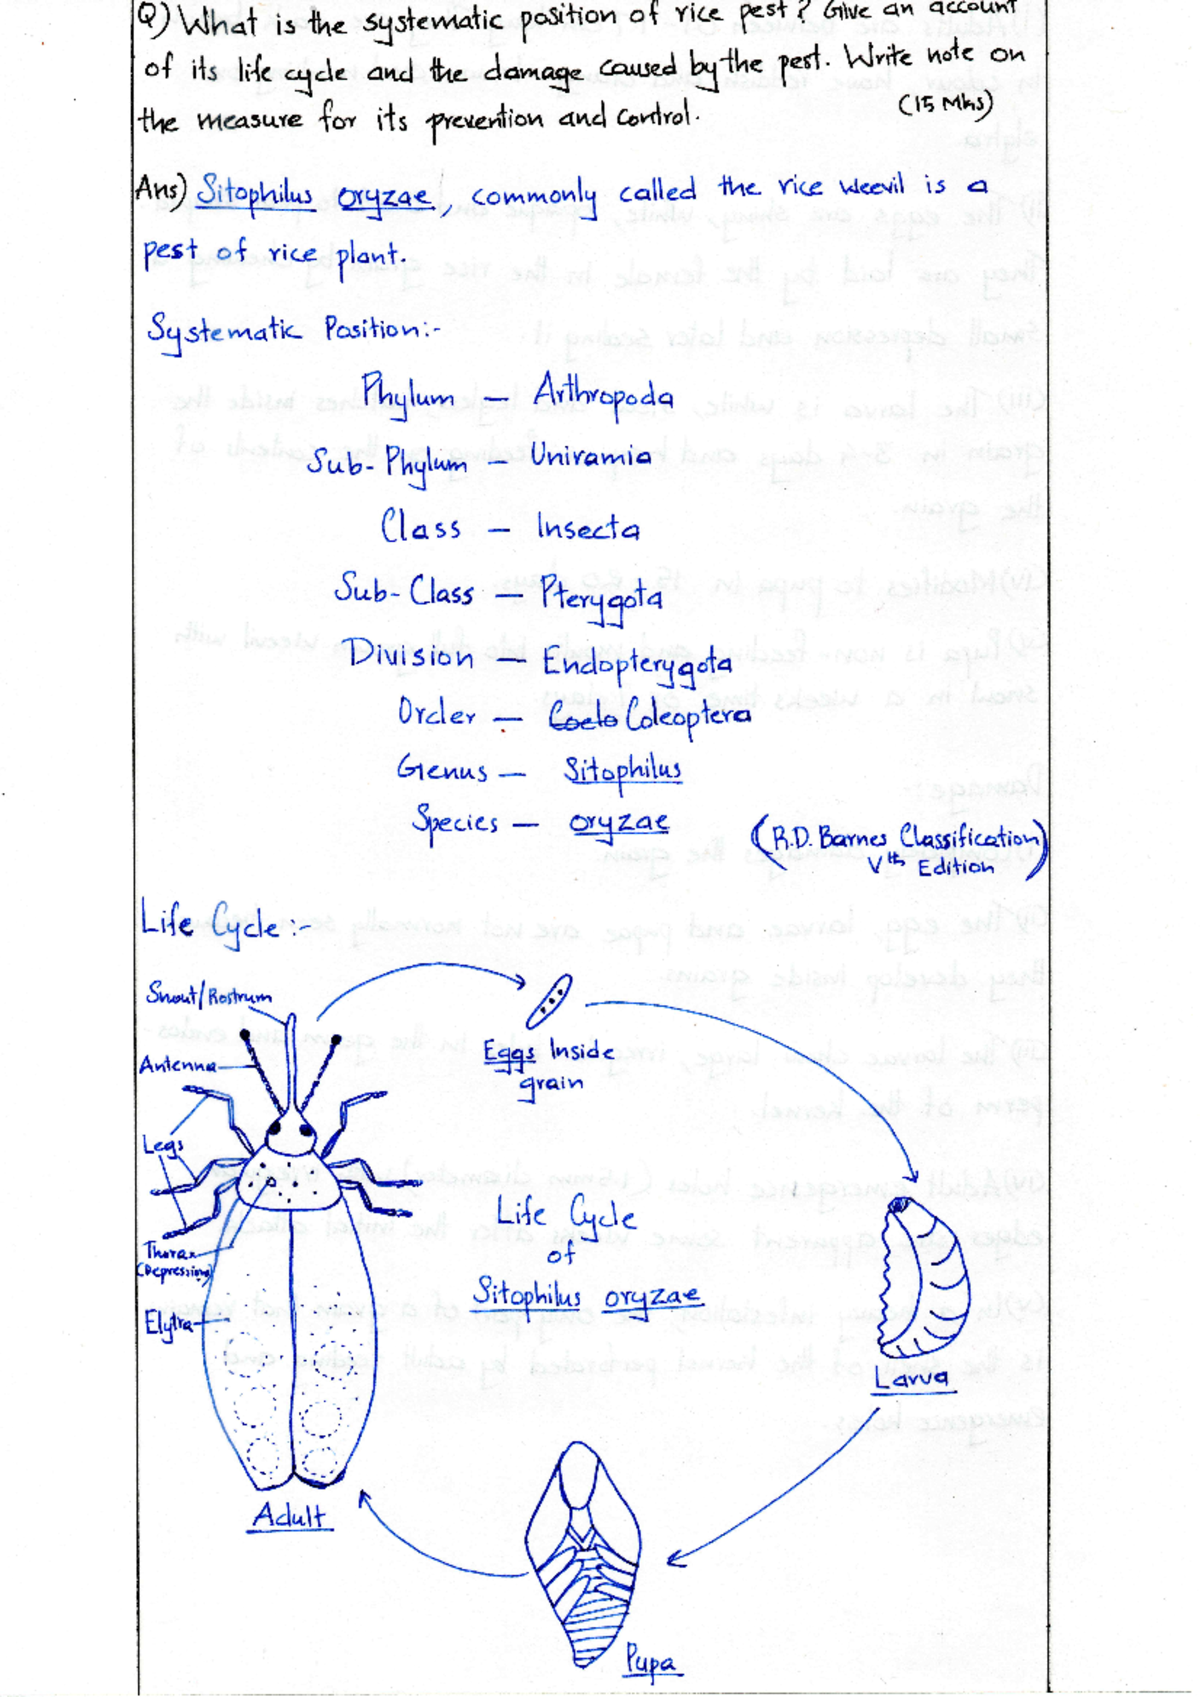 Q) What is the systematic position of rice pest? Give an account
of its life cycle and the damage caused by the pest. Write note on
the measure for its prevention and control. (15 Mks)
Ans) Sitophilus oryzae, commonly called the rice weevil is a
pest of rice plant.
Systematic Position:-
Phylum — Arthropoda
Sub-Phylum — Uniramia
Class — Insecta
Sub-Class — Pterygota
Division — Endopterygota
Order — Coelo Coleoptera
Genus — Sitophilus
Species — oryzae
(R.D. Barnes Classification)
Vth Edition
Life Cycle :-
Snout/Rostrum
Antenna
Legs
Thorax
(Depressions)
Elytra
Adult
Eggs Inside
grain
Life Cycle
of
Sitophilus oryzae
Larva
Pupa